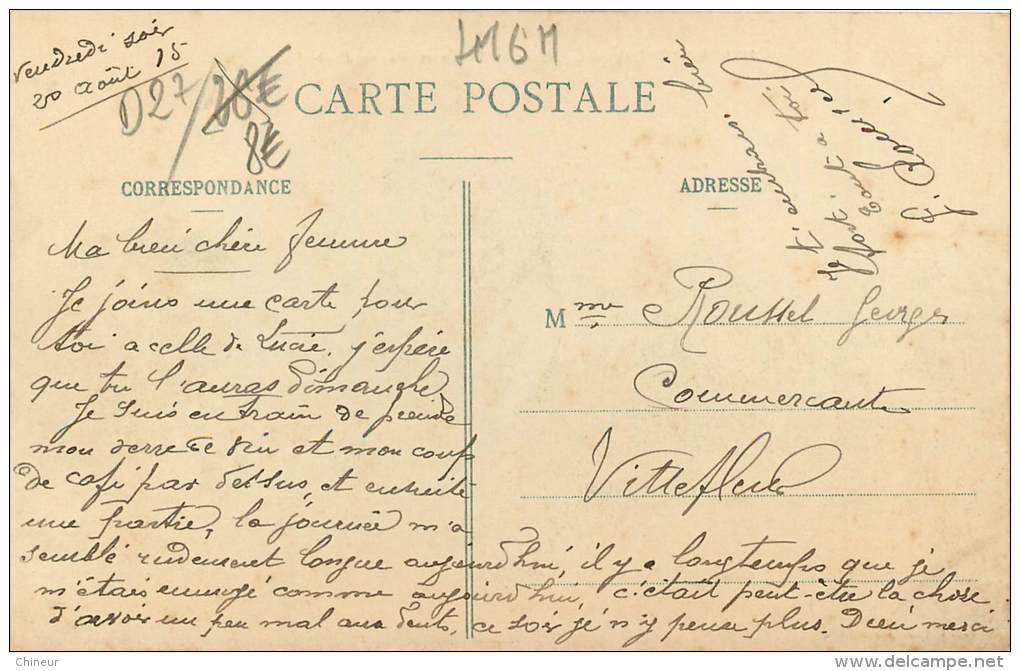 Vendredi soir
20 Août 15
D27/20€
8€
4116M
CARTE POSTALE
CORRESPONDANCE
ADRESSE
Ma bien chère femme
Je joins une carte pour
toi a celle de Lucie, j'espère
que tu l'auras dimanche.
Je suis en train de prendre
mon verre de vin et mon coup
de café par dessus, et ensuite
une partie, la journée m'a
semblé rudement longue aujourd'hui, il y a longtemps que je
m'étais ennuyé comme aujourd'hui, c'était peut-être la chose
d'avoir un peu mal aux dents, ce soir je n'y pense plus. Dieu merci
Mme Roussel Georges
Commercante
Vittefleur
bien
toi
tout a
G. Rou
Chineur
delcampe.net